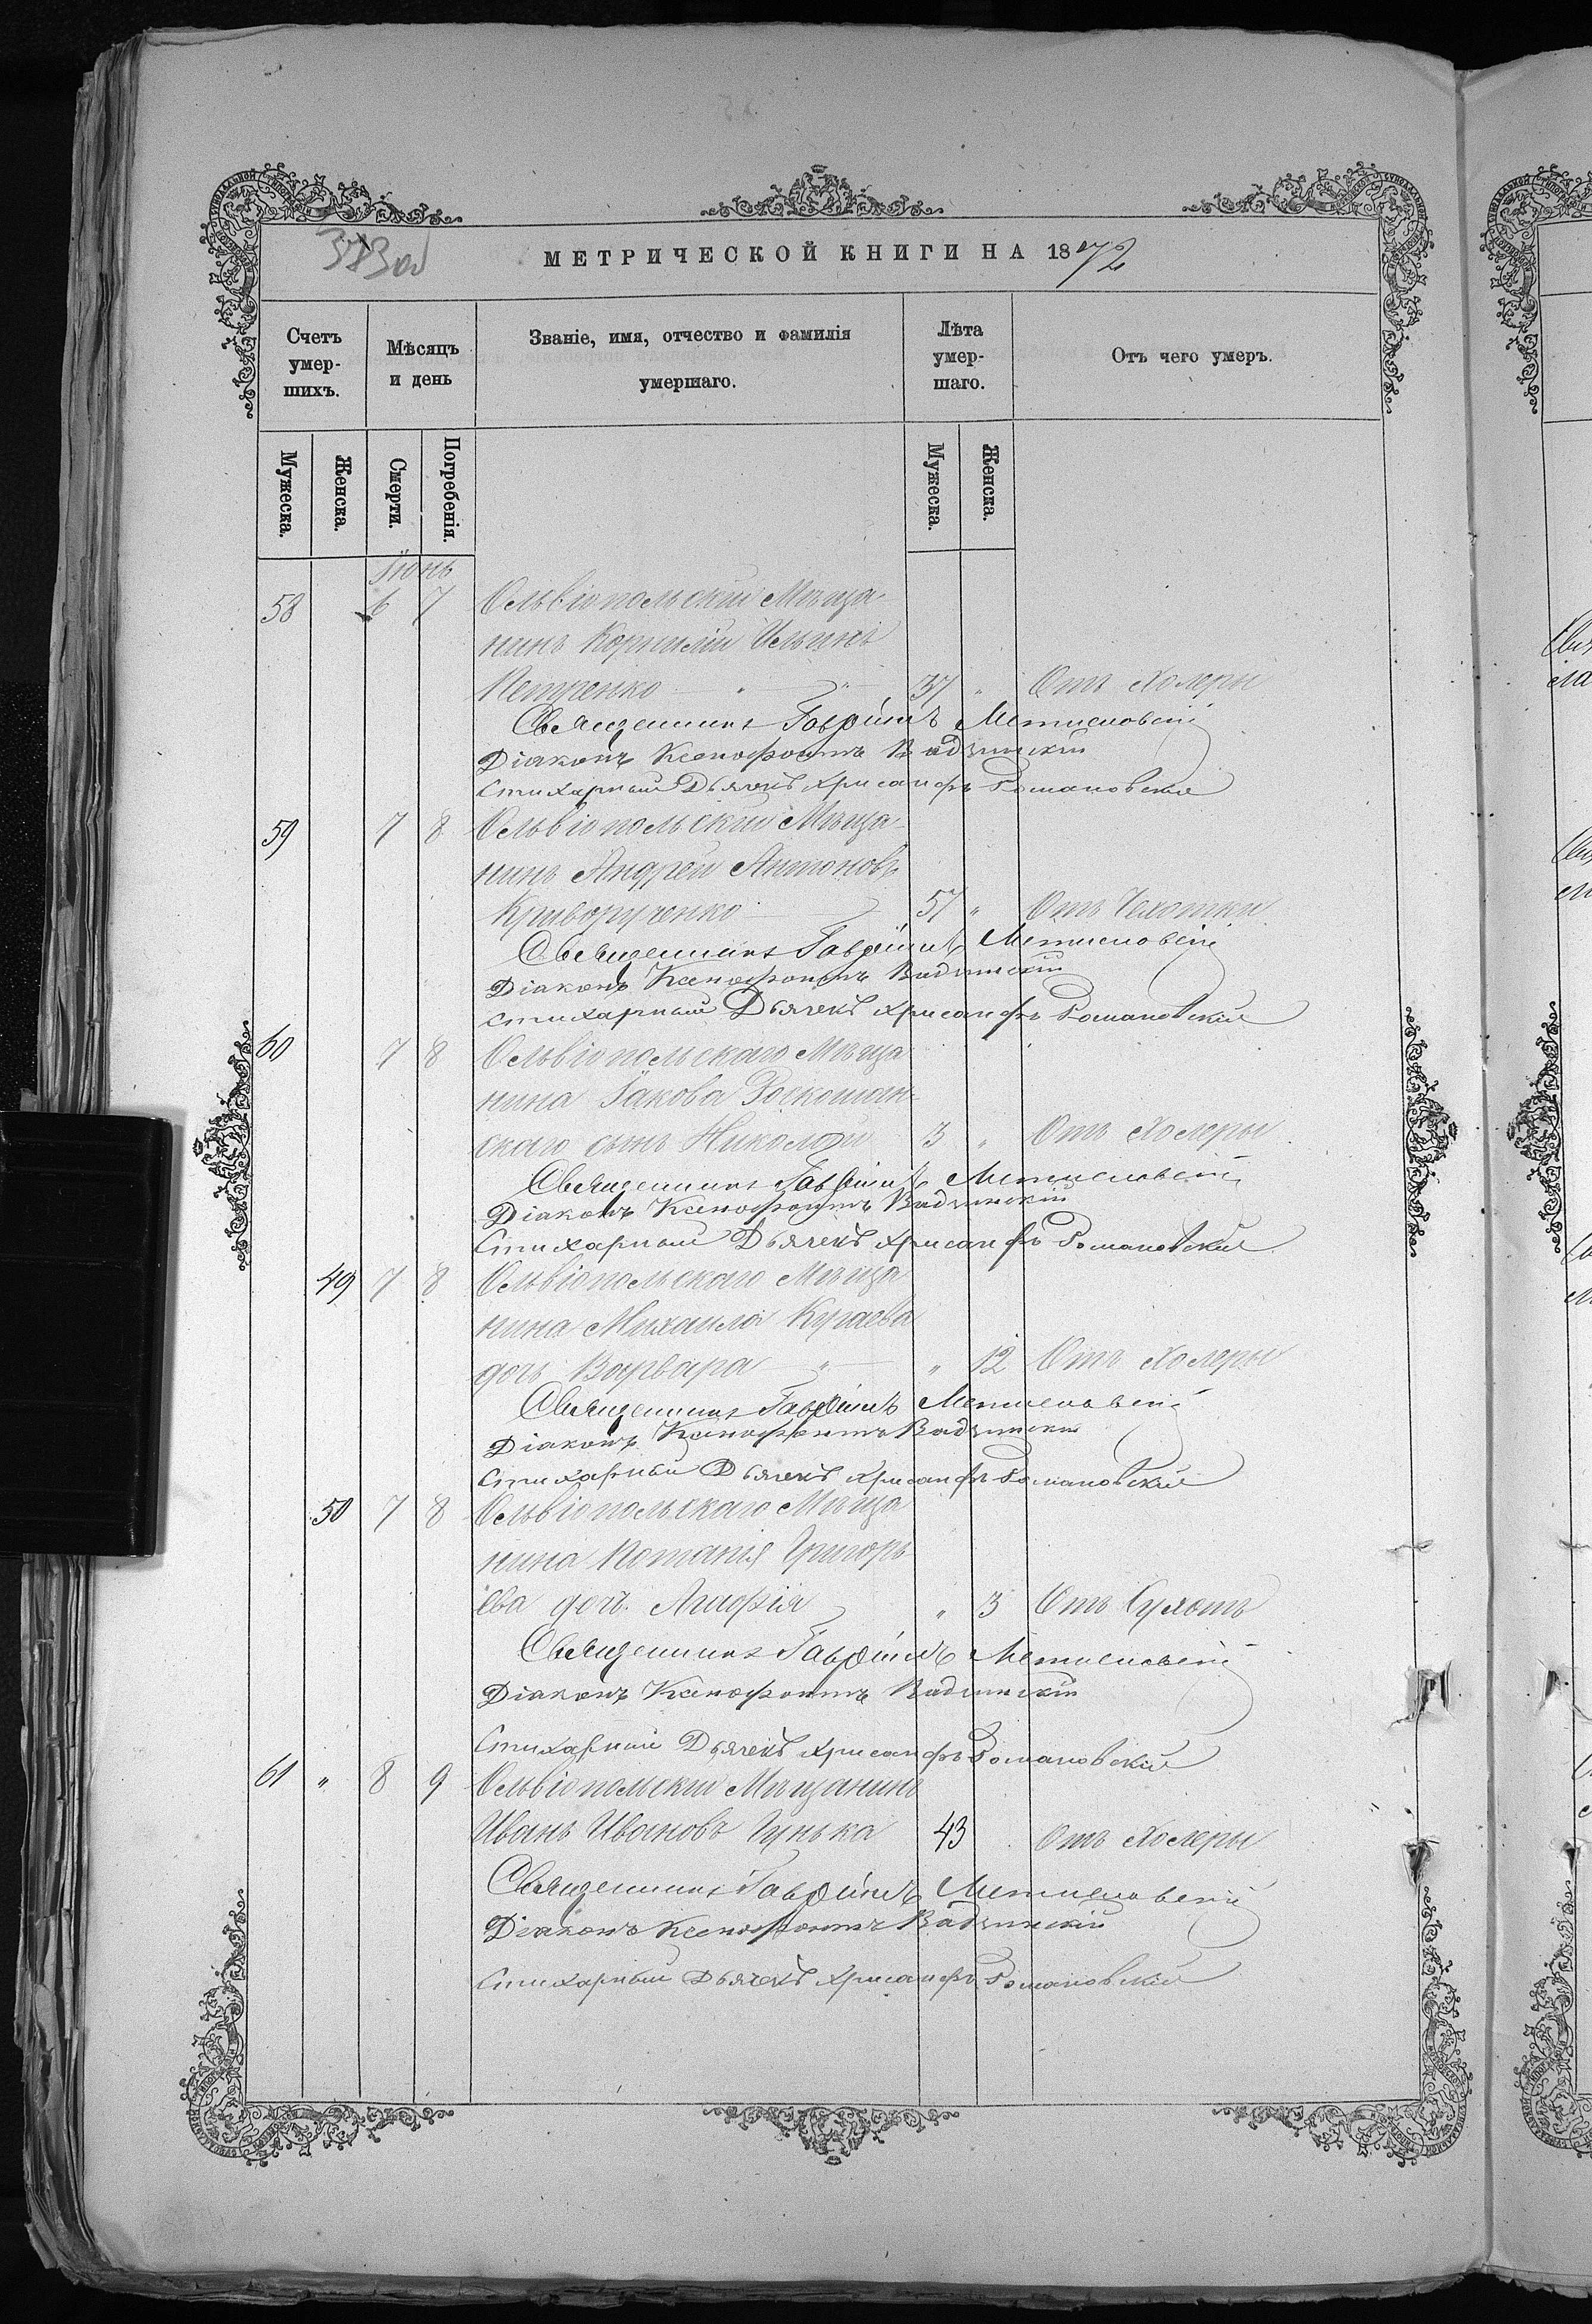 383об
МЕТРИЧЕСКОЙ КНИГИ НА 1872
Счетъ умер-шихъ. Мѣсяцъ и день Званіе, имя, отчество и фамилія умершаго. Лѣта умер-шаго. Отъ чего умеръ.
Мужеска. Женска. Смерти. Погребенія. Мужеска. Женска.
Іюнь
58 6 7 Ольвіопольскій Мѣща
нинъ Корнилій Ильинъ
Петренко 37 " Отъ Холеры
Священникъ Гавріилъ
Діаконъ Ксенофонтъ Вадзинскій
Стихарный Дьячекъ Хрисанфъ Романовскій
59 7 8 Ольвіопольскій Мѣща
нинъ Андрей Антоновъ
Криворученко 57 " Отъ Чахотки
Священникъ Гавріилъ
Діаконъ Ксенофонтъ Вадзинскій
Стихарный Дьячекъ Хрисанфъ Романовскій
60 7 8 Ольвіопольскаго Мѣща
нина Іакова Роскошан-
скаго сынъ Николай 3 " Отъ Холеры
Священникъ Гавріилъ
Діаконъ Ксенофонтъ Вадзинскій
Стихарный Дьячекъ Хрисанфъ Романовскій
49 7 8 Ольвіопольскаго Мѣща
нина Михаила
дочь Варвара " 12 Отъ Холеры
Священникъ Гавріилъ
Діаконъ Ксенофонтъ Вадзинскій
Стихарный Дьячекъ Хрисанфъ Романовскій
50 7 8 Ольвіопольскаго Мѣща
нина Потапія Григорь
ева дочь " 3 Отъ Сухотъ
Священникъ Гавріилъ
Діаконъ Ксенофонтъ Вадзинскій
Стихарный Дьячекъ Хрисанфъ Романовскій
61 " 8 9 Ольвіопольскій Мѣщанинъ
Иванъ Ивановъ Гунька 43 Отъ Холеры
Священникъ Гавріилъ
Діаконъ Ксенофонтъ Вадзинскій
Стихарный Дьячекъ Хрисанфъ Романовскій